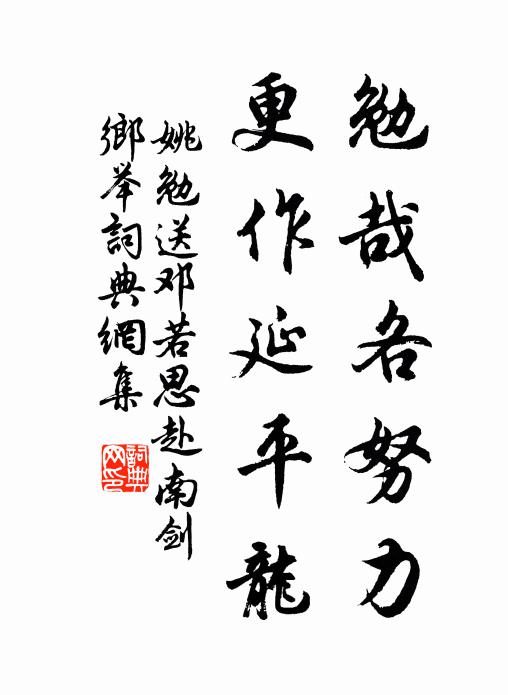 勉哉各努力
更作延平龍
姚勉送邓若思赴南剑
鄉举詞典網集
詞典
网印